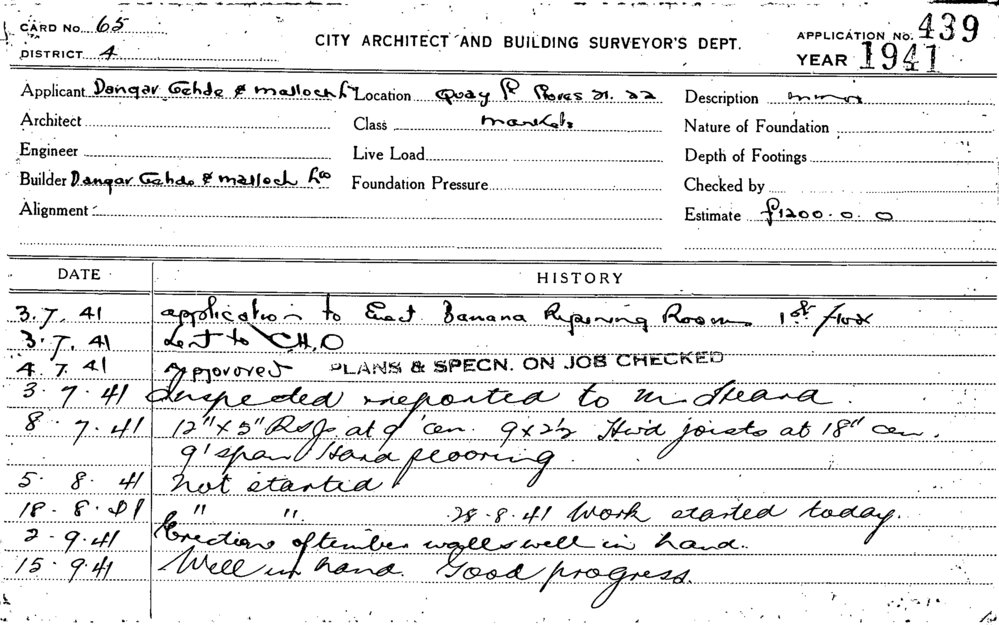 CARD No. 65
DISTRICT 4
CITY ARCHITECT AND BUILDING SURVEYOR'S DEPT.
APPLICATION No. 439
YEAR 1941
Applicant Dangar Gehde & Malloch Ly Location Quay St Stores 21. 22 Description
Architect Class Markets Nature of Foundation
Engineer Live Load Depth of Footings
Builder Dangar Gehde & Malloch Foundation Pressure Checked by
Alignment Estimate £1200. 0. 0
DATE HISTORY
3. 7. 41 application to Erect Banana Ripening Rooms 1st floor
3. 7. 41 Sent to C.H.O
4. 7. 41 Approved PLANS & SPECN. ON JOB CHECKED
3. 7. 41 Inspected & reported to Mr. Heard.
8. 7. 41 12" x 5" RSJs at 9' cen. 9 x 2½ Hwd joists at 18" cen.
9' span Hard flooring.
5. 8. 41 Not started
18. 8. 41 " " 28. 8. 41 Work started today.
2. 9. 41 Erection of timber walls well in hand.
15. 9. 41 Well in hand. Good progress.